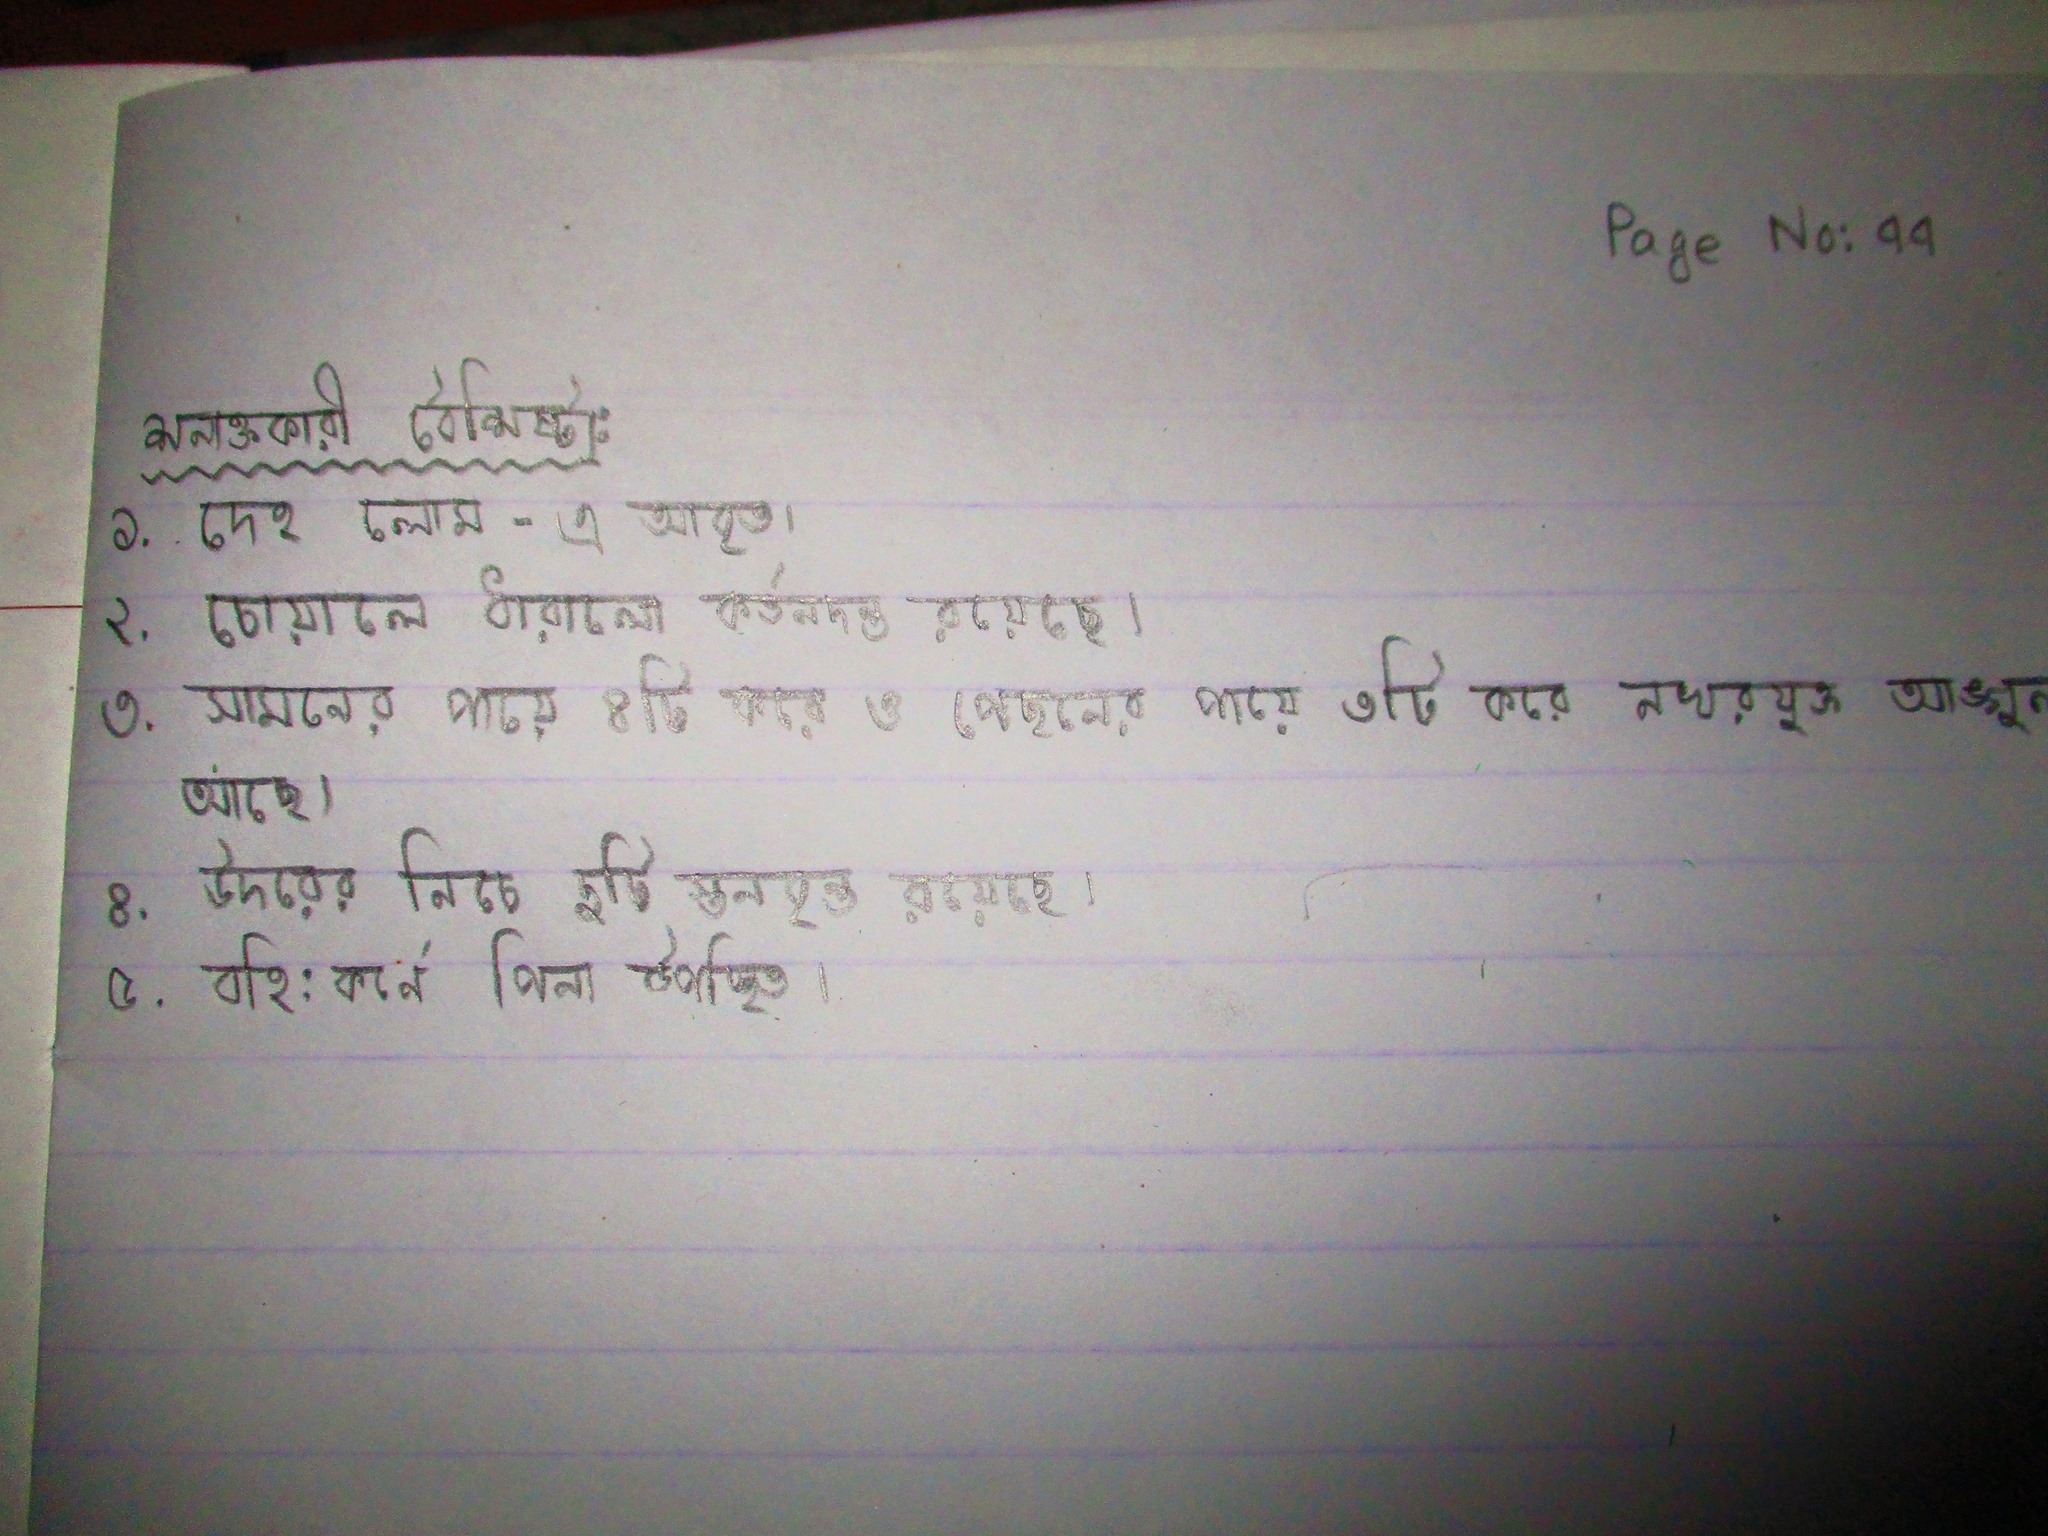 Page No: ৭৭
শনাক্তকারী বৈশিষ্ট্য:
১. দেহ লোম - এ আবৃত।
২. চোয়ালে ধারালো কর্তনদন্ত রয়েছে।
৩. সামনের পায়ে ৪টি করে ও পেছনের পায়ে ৩টি করে নখরযুক্ত আঙ্গুল
আছে।
৪. উদরের নিচে দুটি স্তনবৃন্ত রয়েছে।
৫. বহি: কর্নে পিনা উপস্থিত।